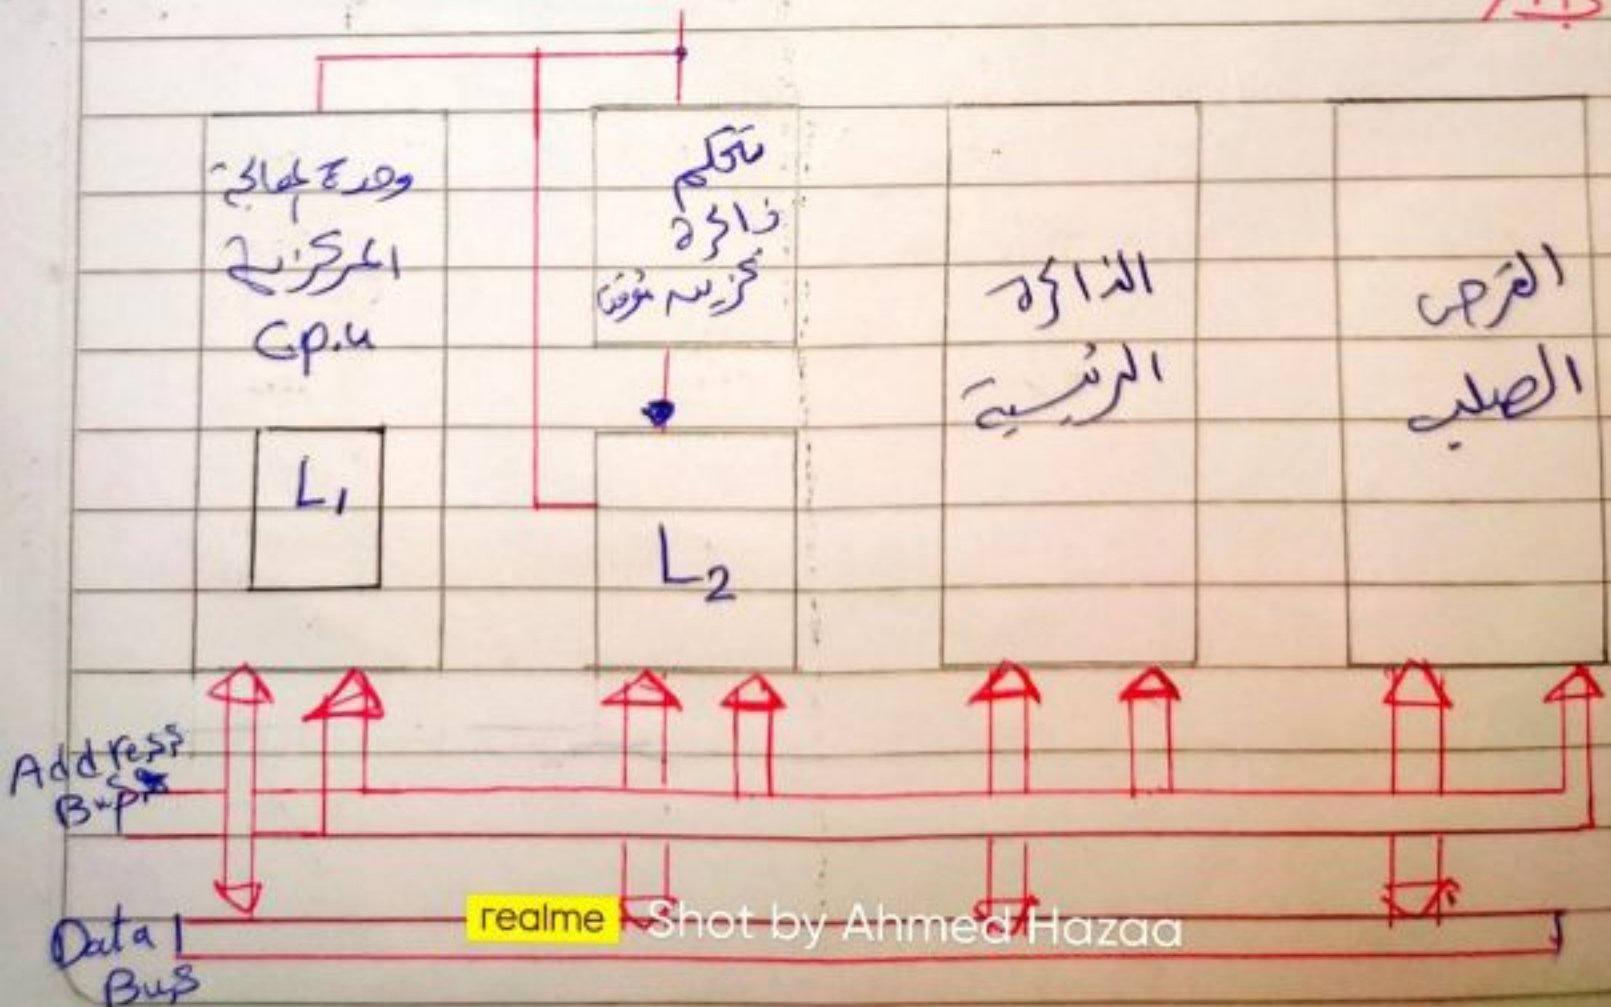 وحدة المعالجة
المركزية
C.p.u
L1
تحكم
ذاكرة
تخزين مؤقت
L2
الذاكرة
الرئيسية
القرص
الصلب
Address
Bus
Data
Bus
realme Shot by Ahmed Hazaa